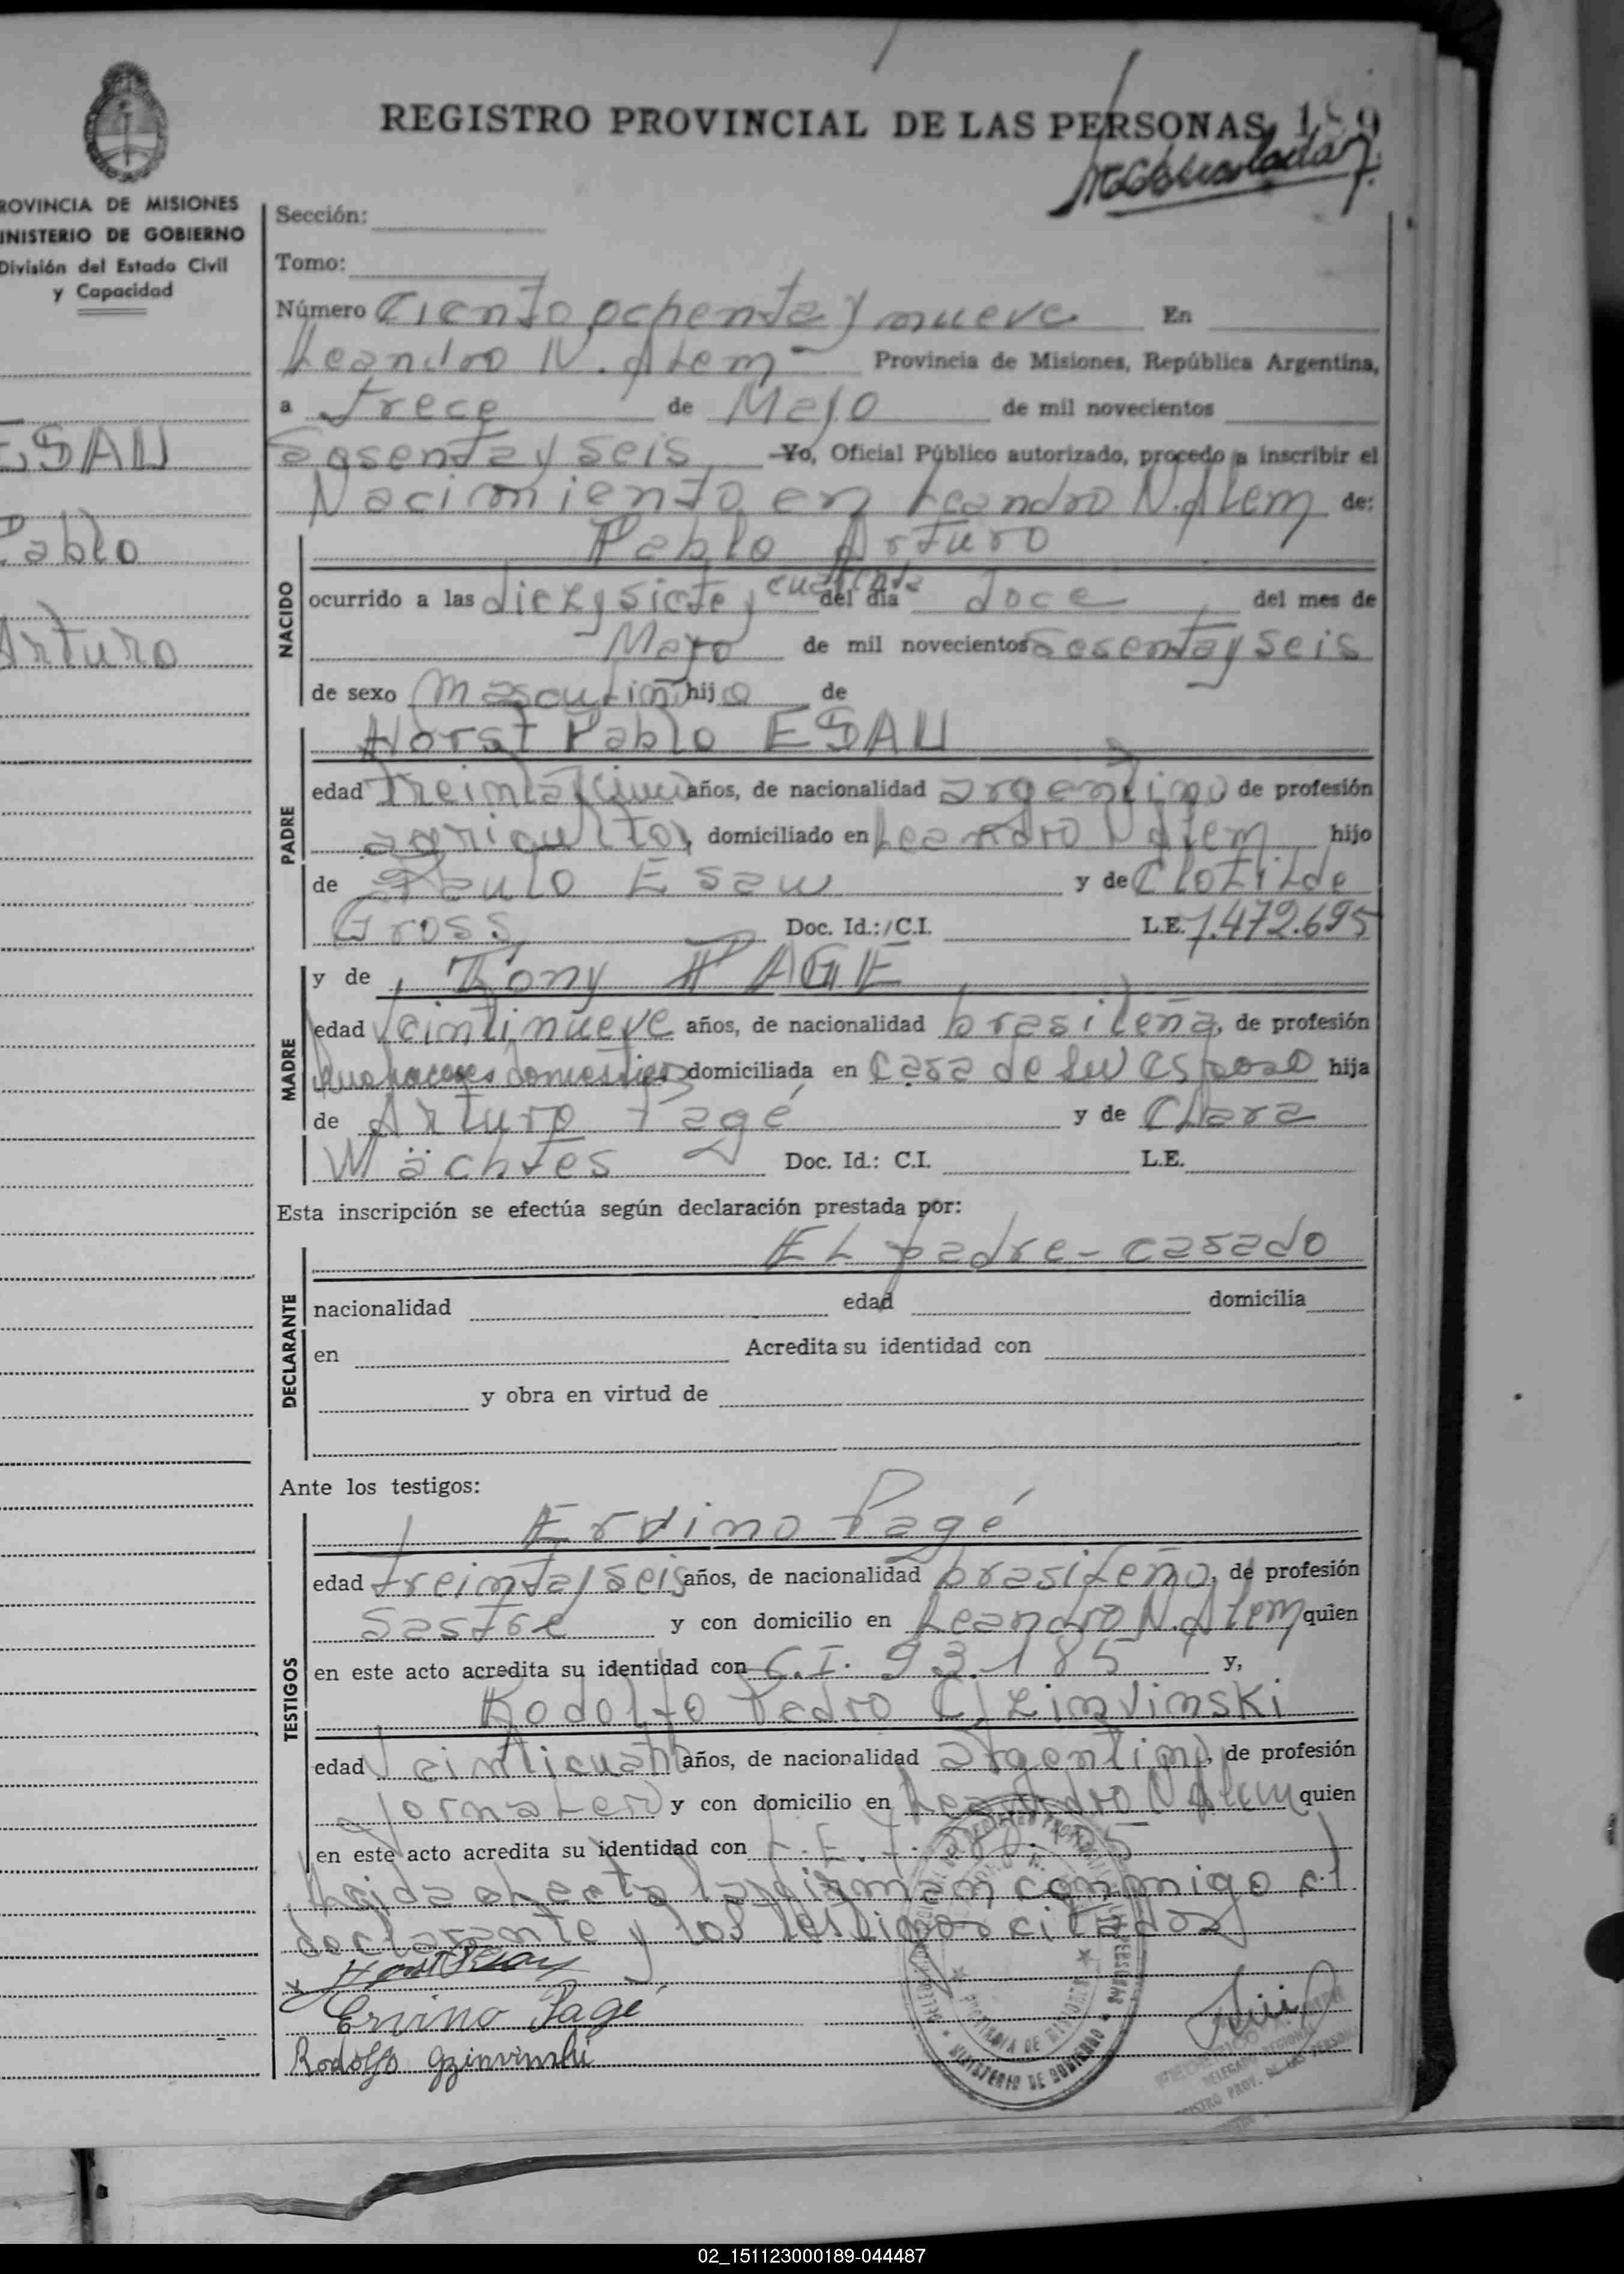 REGISTRO PROVINCIAL DE LAS PERSONAS 189
PROVINCIA DE MISIONES
MINISTERIO DE GOBIERNO
División del Estado Civil
y Capacidad
ESAU
Pablo
Arturo
Sección:
Tomo:
Número Ciento ochenta y nueve En
Leandro N. Alem Provincia de Misiones, República Argentina,
a Trece de Mayo de mil novecientos
Sesenta y seis Yo, Oficial Público autorizado, procedo a inscribir el
Nacimiento en Leandro N. Alem de:
Pablo Arturo
NACIDO
ocurrido a las diez y siete y cuarenta del día doce del mes de
Mayo de mil novecientos Sesenta y seis
de sexo masculino hijo de
PADRE
Horst Pablo ESAU
edad treinta y cinco años, de nacionalidad argentino de profesión
agricultor, domiciliado en Leandro N Alem hijo
de Paulo Esau y de Clotilde
Gross Doc. Id.:/C.I. L.E. 7.472.695
MADRE
y de Tony PAGE
edad Veintinueve años, de nacionalidad brasileña, de profesión
quehaceres domesticos domiciliada en casa de su esposo hija
de Arturo Pagé y de Clara
Wächtes Doc. Id.: C.I. L.E.
Esta inscripción se efectúa según declaración prestada por:
DECLARANTE
El padre - casado
nacionalidad edad domicilia
en Acredita su identidad con
y obra en virtud de
Ante los testigos:
TESTIGOS
Ervino Pagé
edad treinta y seis años, de nacionalidad brasileño, de profesión
Sastre y con domicilio en Leandro N. Alem quien
en este acto acredita su identidad con C.I. 93.185 y,
Rodolfo Pedro
edad Veinticuatro años, de nacionalidad argentino, de profesión
Jornalero y con domicilio en Leandro N Alem quien
en este acto acredita su identidad con L.E. 7.
Leida el acta la firman conmigo el
declarante y los testigos citados
Ervino Pagé
Rodolfo
MINISTERIO DE GOBIERNO
PROVINCIA DE MISIONES
DELEGADO REGIONAL
REGISTRO PROV. DE LAS PERSONAS
02_151123000189-044487